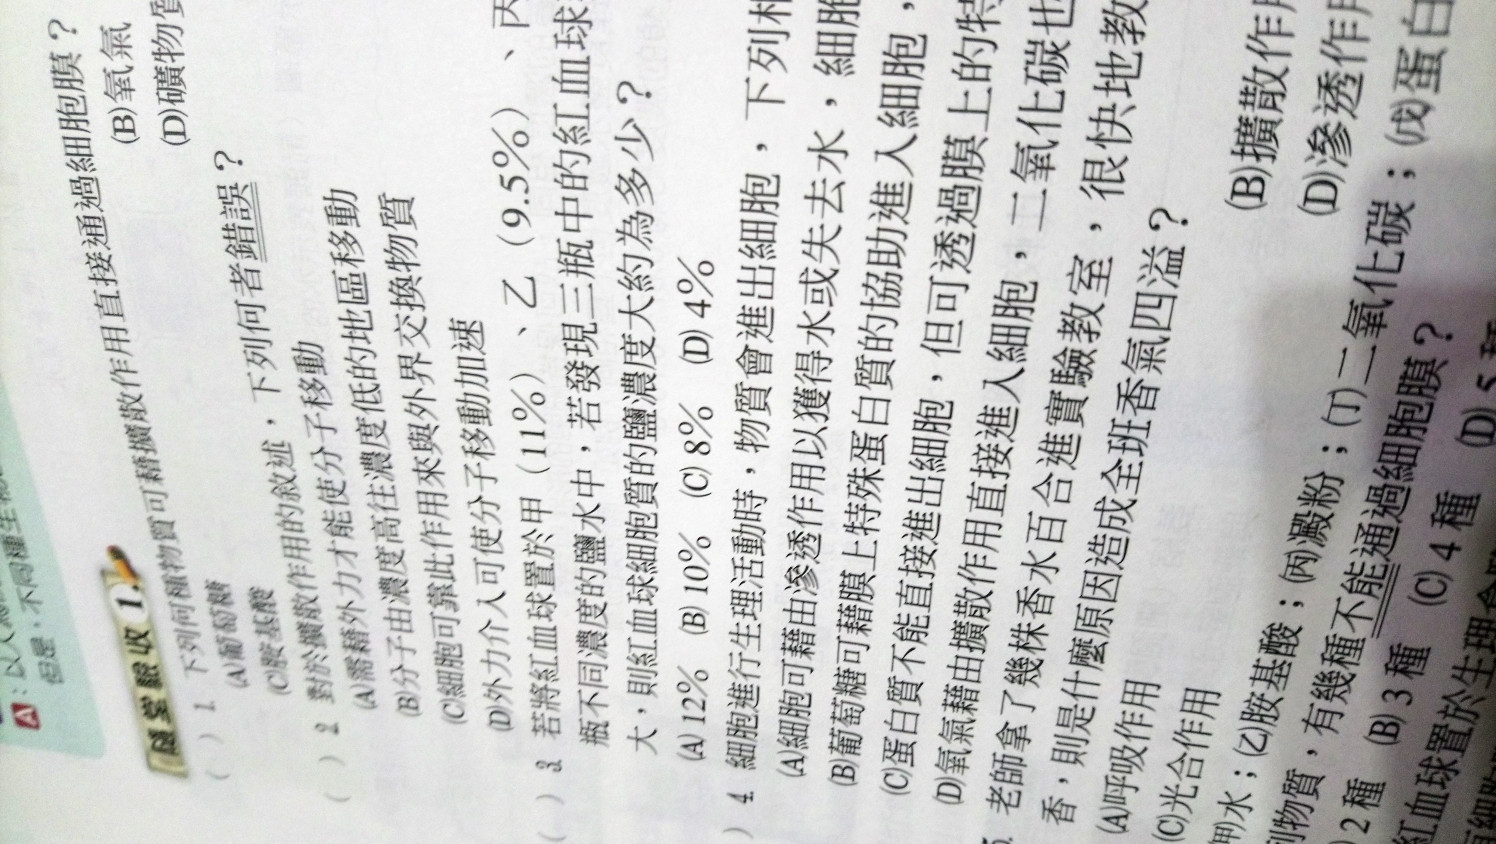 但是，不同種生物
隨堂驗收 1.
( ) 1. 下列何種物質可藉擴散作用直接通過細胞膜？
(A)葡萄糖 (B)氧氣
(C)胺基酸 (D)礦物質
( ) 2. 對於擴散作用的敘述，下列何者錯誤？
(A)需藉外力才能使分子移動
(B)分子由濃度高往濃度低的地區移動
(C)細胞可靠此作用來與外界交換物質
(D)外力介入可使分子移動加速
( ) 3. 若將紅血球置於甲（11%）、乙（9.5%）、丙
瓶不同濃度的鹽水中，若發現三瓶中的紅血球
大，則紅血球細胞質的鹽濃度大約為多少？
(A) 12% (B) 10% (C) 8% (D) 4%
) 4. 細胞進行生理活動時，物質會進出細胞，下列
(A)細胞可藉由滲透作用以獲得水或失去水，細胞
(B)葡萄糖可藉膜上特殊蛋白質的協助進入細胞，
(C)蛋白質不能直接進出細胞，但可透過膜上的特
(D)氧氣藉由擴散作用直接進入細胞，二氧化碳也
5. 老師拿了幾株香水百合進實驗教室，很快地教
香，則是什麼原因造成全班香氣四溢？
(A)呼吸作用 (B)擴散作用
(C)光合作用 (D)滲透作用
(甲)水；(乙)胺基酸；(丙)澱粉；(丁)二氧化碳；(戊)蛋白
列物質，有幾種不能通過細胞膜？
) 2 種 (B) 3 種 (C) 4 種 (D) 5 種
紅血球置於生理食